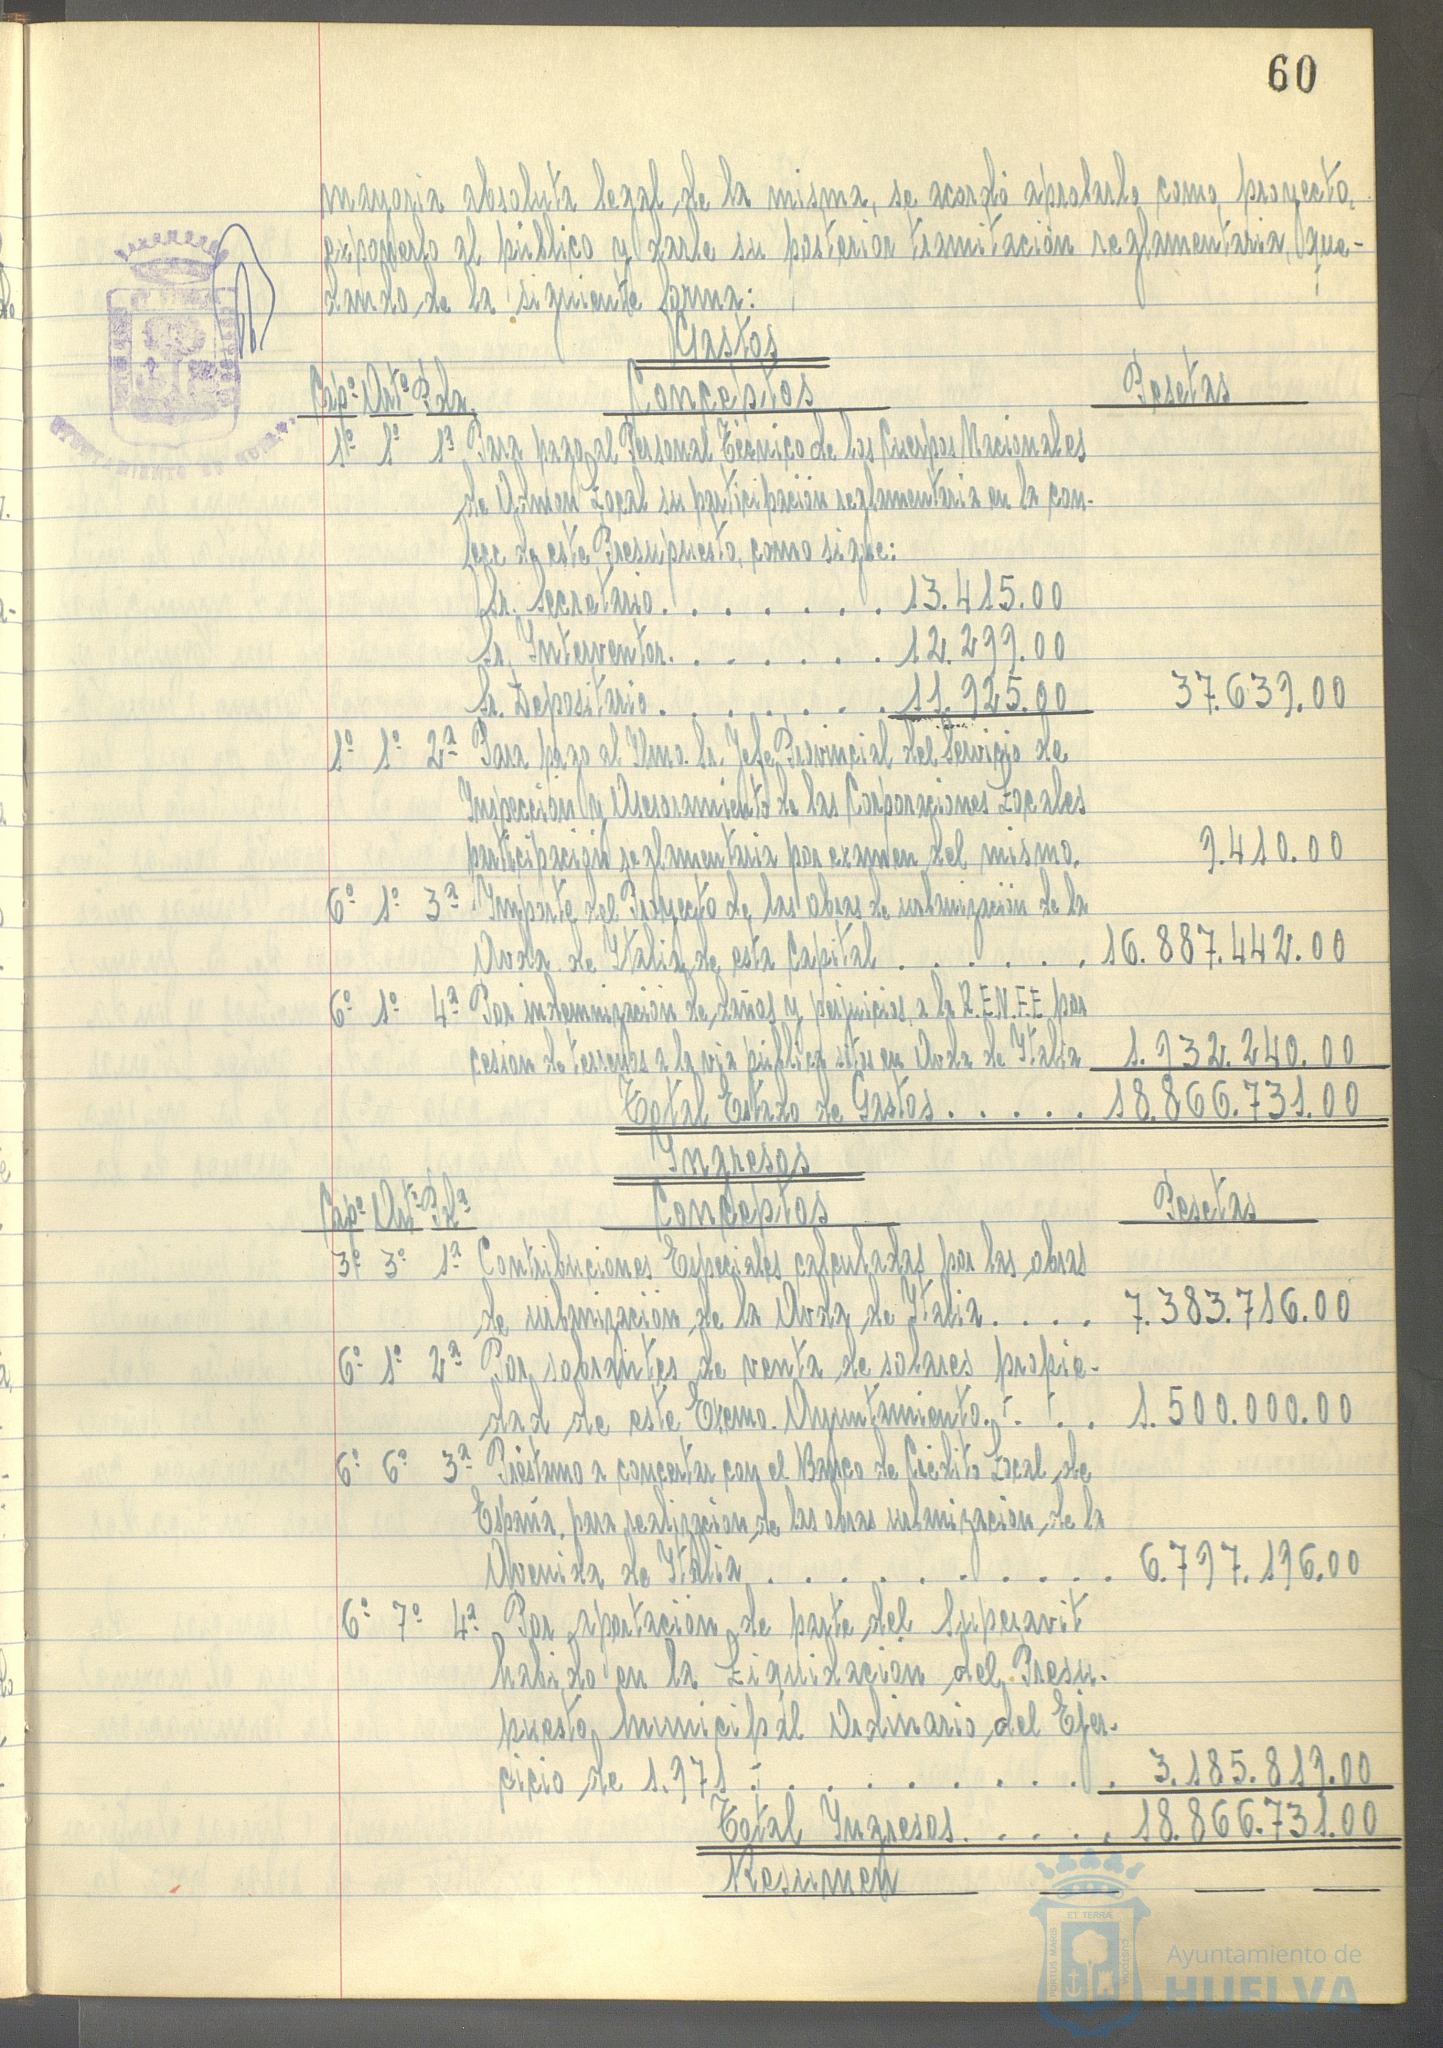 60
mayoria absoluta legal de la misma, se acordó aprobarlo como proyecto,
exponerlo al público y darle su posterior tramitación reglamentaria, que-
dando de la siguiente forma:
Gastos
Capº Artº Pda. Conceptos Pesetas
1º 1º 1ª Para pago al Personal Técnico de los Cuerpos Nacionales
de Admon Local su participación reglamentaria en la con-
fecc de este Presupuesto, como sigue:
Sr. Secretario. . . . . . . 13.415.00
Sr. Interventor. . . . . . . 12.299.00
Sr. Depositario . . . . . . . 11.925.00 37.639.00
1º 1º 2ª Para pago al Ilmo. Sr. Jefe Provincial del Servicio de
Inspección y Asesoramiento de las Corporaciones Locales
participación reglamentaria por examen del mismo. 9.410.00
6º 1º 3ª Importe del Proyecto de las obras de urbanización de la
Avda. de Italia, de esta Capital . . . . . . 16.887.442.00
6º 1º 4ª Por indemnización de daños y perjuicios, a la R.E.N.F.E por
cesion de terrenos a la via pública sitos en Avda de Italia 1.932.240.00
Total Estado de Gastos . . . . . 18.866.731.00
Ingresos
Capº Artº Pdª Conceptos Pesetas
3º 3º 1ª Contribuciones Especiales calculadas por las obras
de urbanización de la Avda de Italia. . . . . 7.383.716.00
6º 1º 2ª Por sobrantes de venta de solares propie-
dad de este Excmo. Ayuntamiento. . . . . 1.500.000.00
6º 6º 3ª Préstamo a concertar con el Banco de Crédito Local de
España, para realización de las obras urbanización de la
Avenida de Italia . . . . . . . . . . 6.797.196.00
6º 7º 4ª Por aportación de parte del Superavit
habido en la Liquidación del Presu-
puesto Municipal Ordinario del Ejer-
cicio de 1.971 . . . . . . . . . . 3.185.819.00
Total Ingresos. . . . . . 18.866.731.00
Resumen
ET TERRÆ
PORTUS MARIS
CUSTODIA
Ayuntamiento de
HUELVA